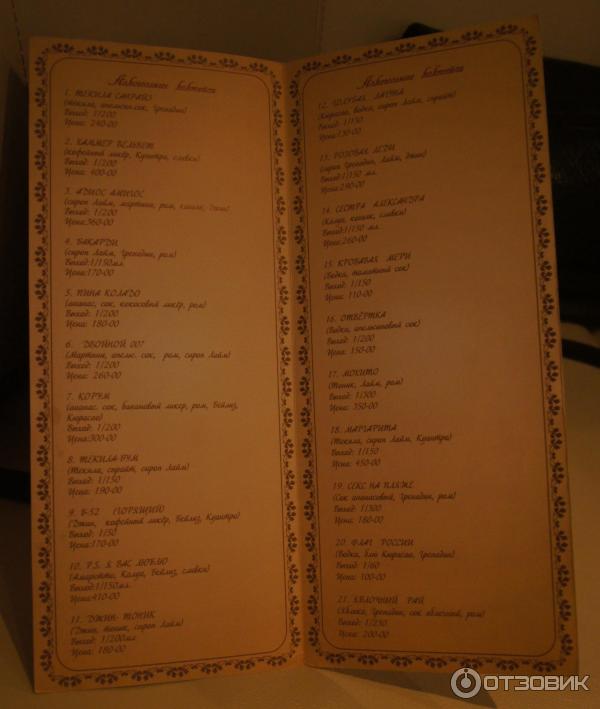 Алкогольные коктейли
1. ТЕКИЛА САНРАЙЗ
(текила, апельсин.сок, Гренадин)
Выход: 1/200
Цена: 240-00
2. ХАММЕР ВЕЛЬВЕТ
(кофейный ликёр, Куантро, сливки)
Выход: 1/200
Цена: 400-00
3. АДИОС АМИГОС
(сироп Лайм, мартини, ром, коньяк, джин)
Выход: 1/200
Цена:360-00
4. БАКАРДИ
(сироп Лайм, Гренадин, ром)
Выход:1/150мл
Цена:170-00
5. ПИНА КОЛАДО
(ананас. сок, кокосовый ликёр, ром)
Выход: 1/200
Цена: 180-00
6. ДВОЙНОЙ 007
(Мартини, апельс. сок, ром, сироп Лайм)
Выход: 1/200
Цена: 260-00
7. КОРУМ
(ананас. сок, банановый ликер, ром, Бейлиз,
Кюрасао)
Выход: 1/200
Цена:300-00
8. ТЕКИЛА-БУМ
(Текила, спрайт, сироп Лайм)
Выход: 1/150
Цена: 190-00
9. Б-52 (ГОРЯЩИЙ)
(Джин, кофейный ликёр, Бейлиз, Куантро)
Выход: 1/50
Цена:170-00
10. P.S. Я ВАС ЛЮБЛЮ
(Амаретто, Калуа, Бейлиз, сливки)
Выход:1/150мл.
Цена:410-00
11. ДЖИН-ТОНИК
(Джин, тоник, сироп Лайм)
Выход: 1/200мл
Цена: 180-00
Алкогольные коктейли
12. ГОЛУБАЯ ЛАГУНА
(Кюрасао, водка, сироп Лайм, спрайт)
Выход: 1/150
Цена:130-00
13. РОЗОВАЯ ЛЕДИ
(сироп Гренадин, Лайм, джин)
Выход:1/150 мл.
Цена:290-00
14. СЕСТРА АЛЕКСАНДРА
(Калуа, коньяк, сливки)
Выход:1/150 мл
Цена:260-00
15. КРОВАВАЯ МЕРИ
(Водка, томатный сок)
Выход: 1/150
Цена: 110-00
16. ОТВЁРТКА
(Водка, апельсиновый сок)
Выход: 1/200
Цена: 150-00
17. МОХИТО
(Тоник, Лайм, ром)
Выход: 1/300
Цена: 350-00
18. МАРГАРИТА
(Текила, сироп Лайм, Куантро)
Выход: 1/150
Цена: 450-00
19. СЕКС НА ПЛЯЖЕ
(Сок ананасовый, Гренадин, ром)
Выход: 1/300
Цена: 180-00
20. ФЛАГ РОССИИ
(Водка, Блю Кюрасао, Гренадин)
Выход: 1/60
Цена: 100-00
21. ЯБЛОЧНЫЙ РАЙ
(Яблоко, Гренадин, сок яблочный, ром)
Выход: 1/250
Цена: 200-00
ОТЗОВИК